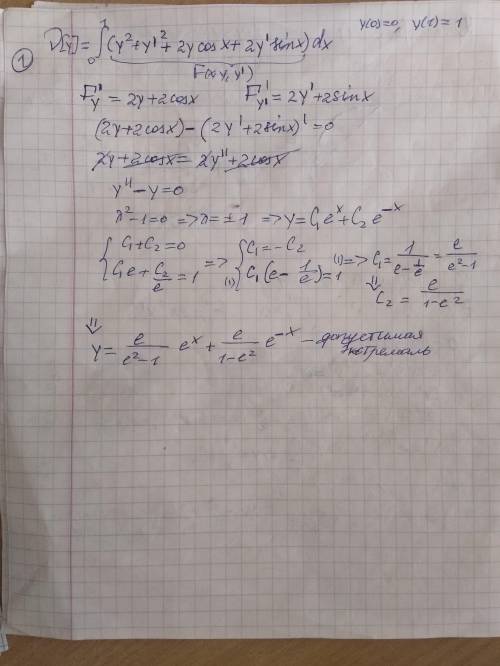 ① V[y] = ∫₀¹ (y² + y'² + 2y cos x + 2y' sin x) dx y(0)=0, y(1)=1
F(x, y, y')
F'y = 2y + 2cos x F'y' = 2y' + 2 sin x
(2y + 2cos x) − (2y' + 2 sin x)' = 0
2y + 2cos x = 2y'' + 2cos x
y'' − y = 0
λ² − 1 = 0 => λ = ±1 => y = C₁eˣ + C₂e⁻ˣ
{ C₁ + C₂ = 0 => { C₁ = −C₂ (1) => C₁ = 1/(e − 1/e) = e/(e² − 1)
C₁e + C₂/e = 1 (1) C₁(e − 1/e) = 1 ⇓ C₂ = e/(1 − e²)
⇓
y = e/(e² − 1) eˣ + e/(1 − e²) e⁻ˣ − допустимая
экстремаль